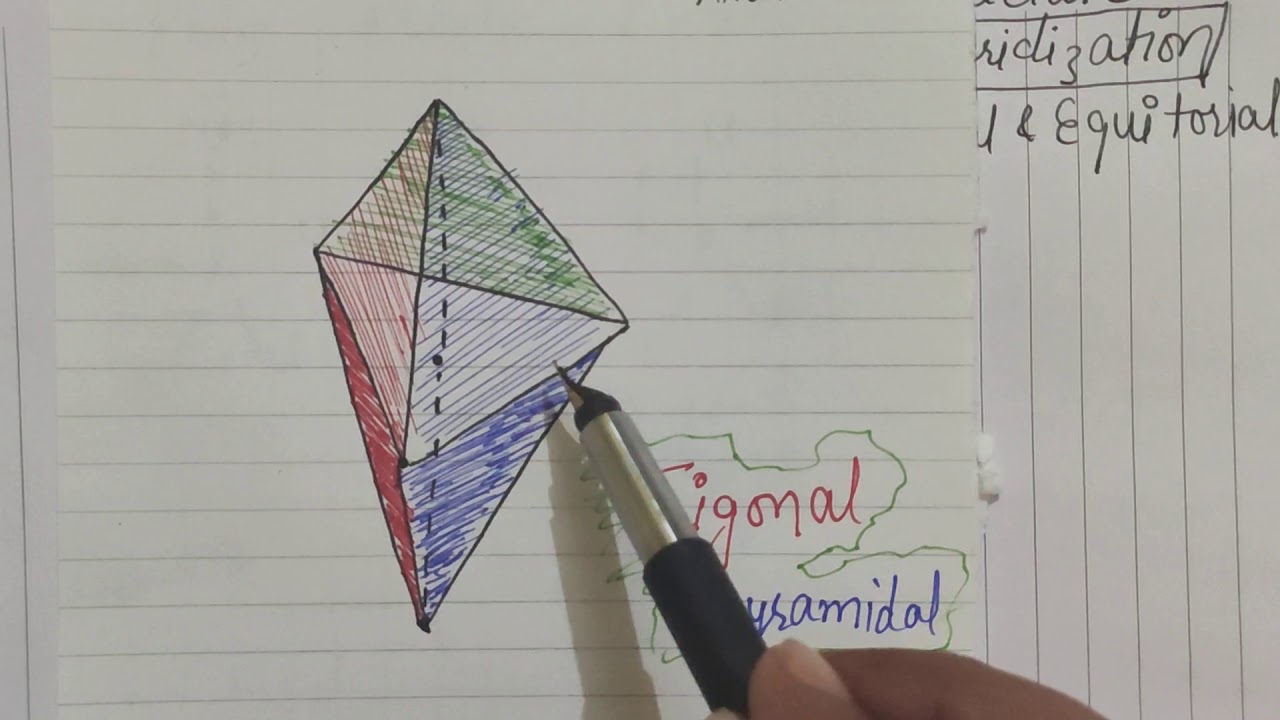 ridization
& Equitorial
igonal
yramidal